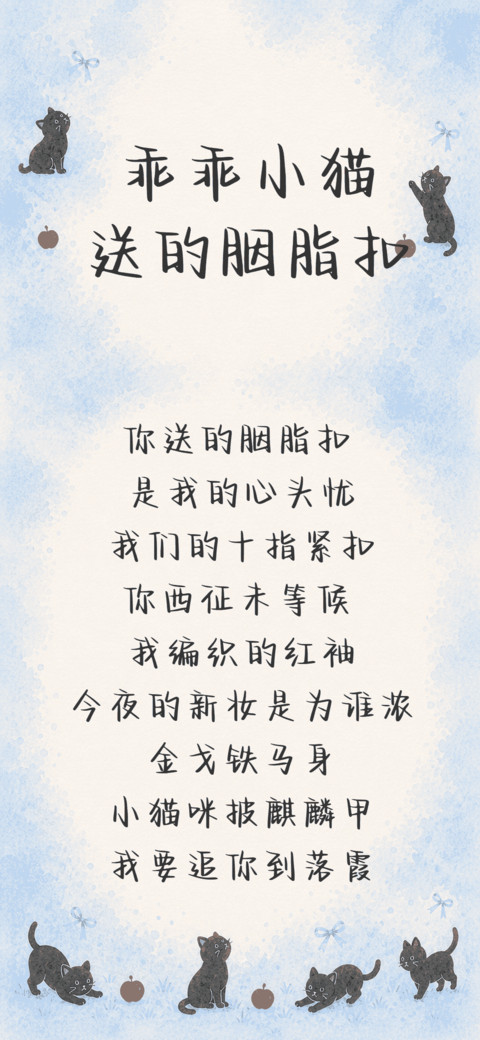 乖乖小猫
送的胭脂扣
你送的胭脂扣
是我的心头忧
我们的十指紧扣
你西征未等候
我编织的红袖
今夜的新妆是为谁浓
金戈铁马身
小猫咪披麒麟甲
我要追你到落霞